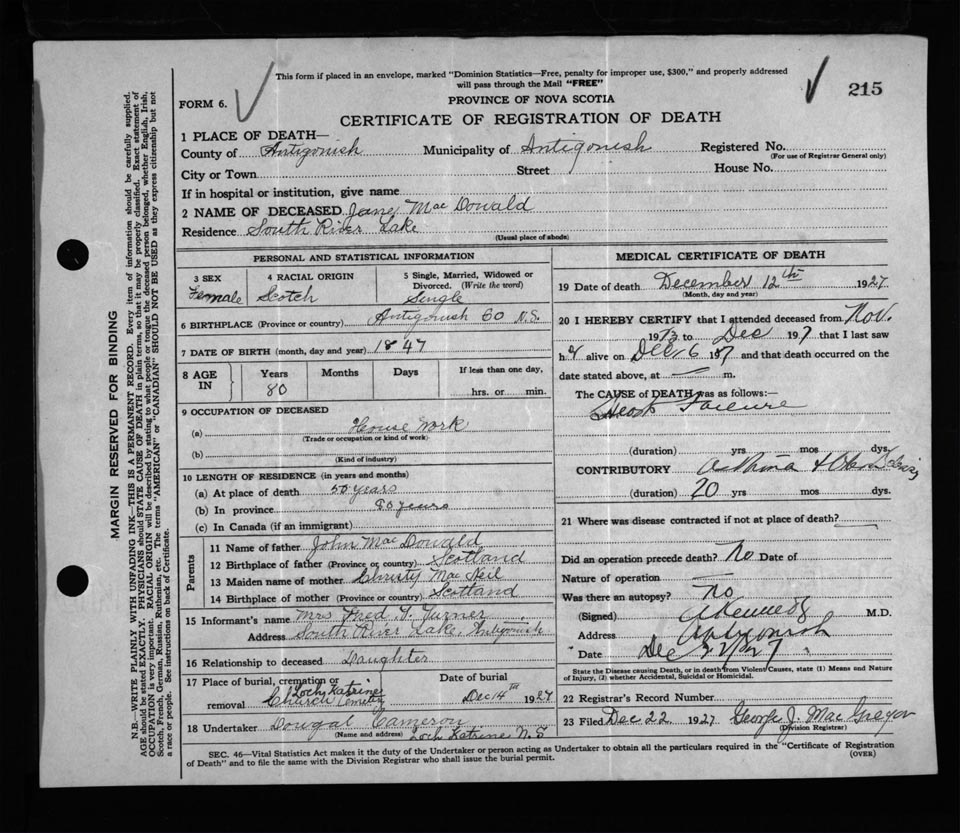 This form if placed in an envelope, marked "Dominion Statistics—Free, penalty for improper use, $300," and properly addressed
will pass through the Mail "FREE"
215
FORM 6.
PROVINCE OF NOVA SCOTIA
CERTIFICATE OF REGISTRATION OF DEATH
1 PLACE OF DEATH—
County of Antigonish Municipality of Antigonish Registered No.
(For use of Registrar General only)
City or Town Street House No.
If in hospital or institution, give name
2 NAME OF DECEASED Jane Mac Donald
Residence South River Lake
(Usual place of abode)
PERSONAL AND STATISTICAL INFORMATION
3 SEX
Female
4 RACIAL ORIGIN
Scotch
5 Single, Married, Widowed or
Divorced. (Write the word)
Single
6 BIRTHPLACE (Province or country) Antigonish Co N.S.
7 DATE OF BIRTH (month, day and year) 1847
8 AGE
IN
Years Months Days If less than one day,
80 hrs. or min.
9 OCCUPATION OF DECEASED
(a) House work
(Trade or occupation or kind of work)
(b)
(Kind of industry)
10 LENGTH OF RESIDENCE (in years and months)
(a) At place of death 50 years
(b) In province 80 years
(c) In Canada (if an immigrant)
Parents
11 Name of father John Mac Donald
12 Birthplace of father (Province or country) Scotland
13 Maiden name of mother Christy Mac Neil
14 Birthplace of mother (Province or country) Scotland
15 Informant's name Mrs Fred F. Turner
Address South River Lake, Antigonish
16 Relationship to deceased Daughter
17 Place of burial, cremation or Date of burial
removal Loch Katrine
Church Cemetery Dec 14th 1927
18 Undertaker Dougal Cameron
(Name and address) Loch Katrine N.S
MEDICAL CERTIFICATE OF DEATH
19 Date of death December 12th 1927
(Month, day and year)
20 I HEREBY CERTIFY that I attended deceased from Nov.
to Dec 197 that I last saw
h alive on Dec 6 and that death occurred on the
date stated above, at — m.
The CAUSE of DEATH was as follows:—
Heart Failure
(duration) yrs mos dys.
CONTRIBUTORY Asthma
(duration) 20 yrs mos dys.
21 Where was disease contracted if not at place of death?
Did an operation precede death? No Date of
Nature of operation —
Was there an autopsy? No
(Signed) A Kennedy M.D.
Address Antigonish
Date Dec 27
State the Disease causing Death, or in death from Violent Causes, state (1) Means and Nature
of Injury, (2) whether Accidental, Suicidal or Homicidal.
22 Registrar's Record Number
23 Filed Dec 22 1927 George J. Mac Gregor
(Division Registrar)
SEC. 46—Vital Statistics Act makes it the duty of the Undertaker or person acting as Undertaker to obtain all the particulars required in the "Certificate of Registration
of Death" and to file the same with the Division Registrar who shall issue the burial permit.
(OVER)
MARGIN RESERVED FOR BINDING
N.B.—WRITE PLAINLY WITH UNFADING INK—THIS IS A PERMANENT RECORD. Every item of information should be carefully supplied.
AGE should be stated EXACTLY. PHYSICIANS should STATE CAUSE OF DEATH in plain terms, so that it may be properly classified. Exact statement of
OCCUPATION is very important. RACIAL ORIGIN will be described by stating to what people or tongue the deceased person belonged, whether English, Irish,
Scotch, French, German, Russian, Ruthenian, etc. The terms "AMERICAN" or "CANADIAN" SHOULD NOT BE USED as they express citizenship but not
a race or people. See instructions on back of Certificate.